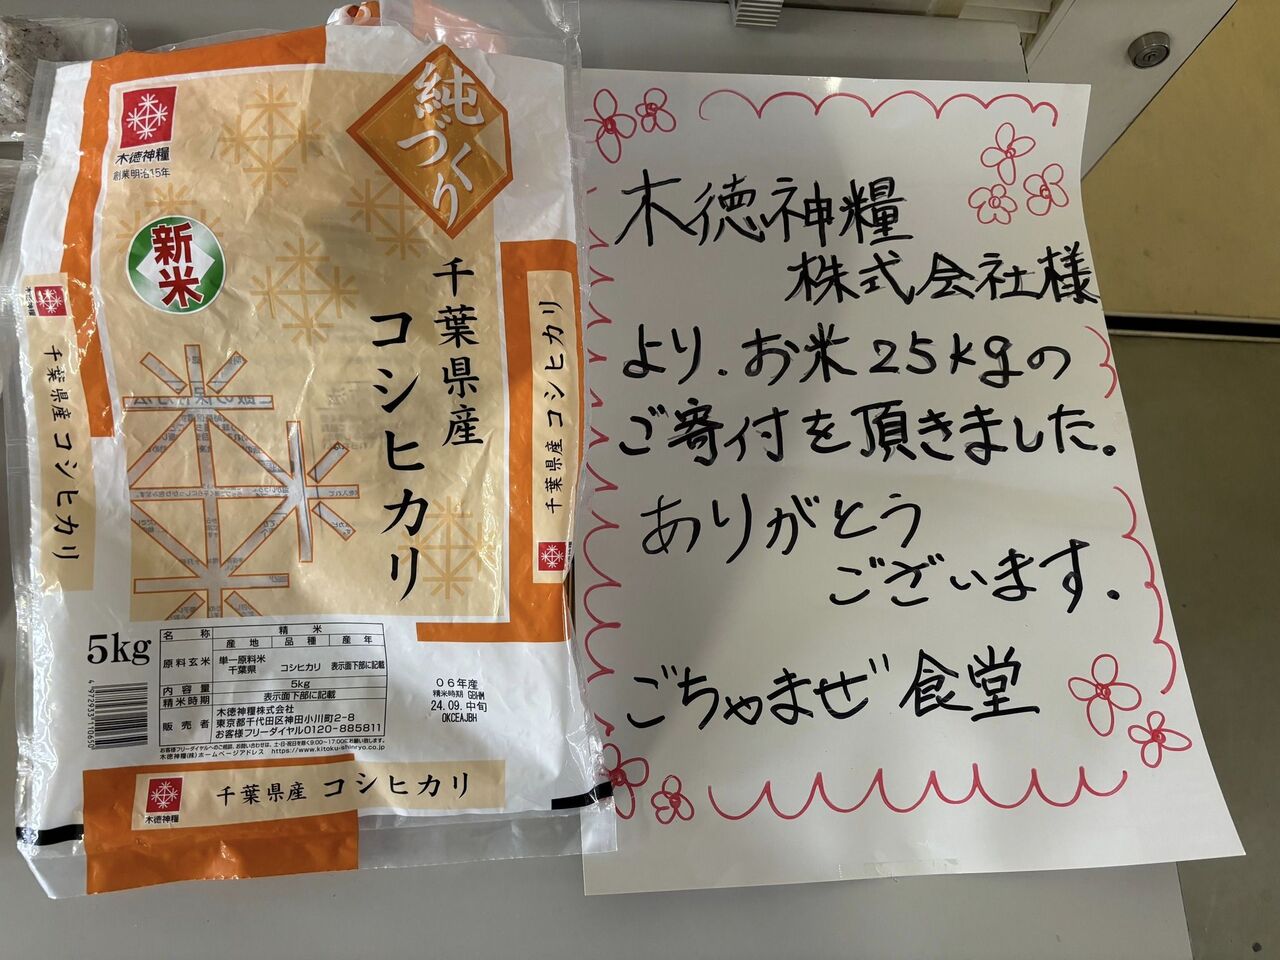 木徳神糧
創業明治15年
純づくり
新米
千葉県産
コシヒカリ
木徳神糧
千葉県産 コシヒカリ
千葉県産 コシヒカリ
5kg
名称 精米
産地 品種 産年
原料玄米 単一原料米
千葉県 コシヒカリ 表示面下部に記載
内容量 5kg
精米時期 表示面下部に記載
販売者 木徳神糧株式会社
東京都千代田区神田小川町2-8
お客様フリーダイヤル0120-885811
お客様フリーダイヤルへのご相談、お問い合わせは、土・日・祝日を除く9:00~17:00にお願い致します。
木徳神糧(株)ホームページアドレス https://www.kitoku-shinryo.co.jp
4 972933 110650
06年産
精米時期 GBHM
24.09.中旬
OKCEAJBH
木徳神糧
千葉県産 コシヒカリ
木徳神糧
株式会社様
より、お米25kgの
ご寄付を頂きました。
ありがとう
ございます.
ごちゃまぜ食堂